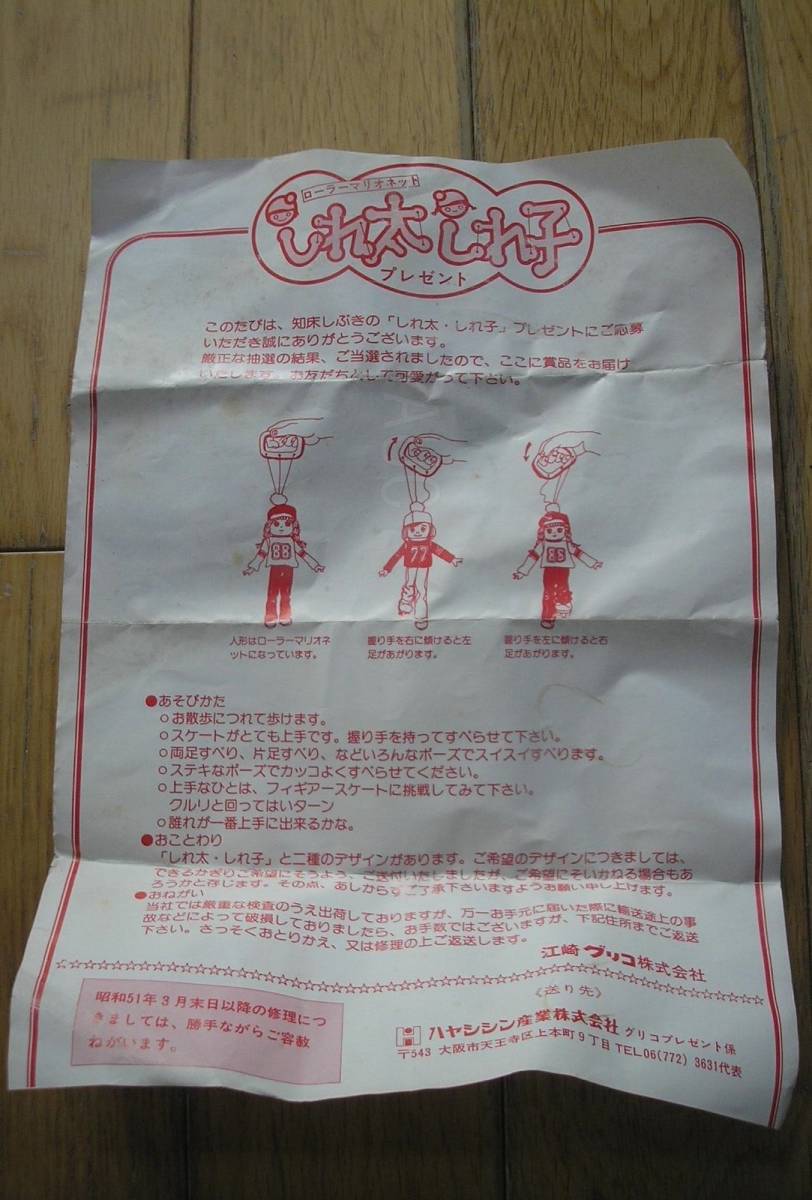 ローラーマリオネット
しれ太 しれ子
プレゼント
このたびは、知床しぶきの「しれ太・しれ子」プレゼントにご応募
いただき誠にありがとうございます。
厳正な抽選の結果、ご当選されましたので、ここに賞品をお届け
いたします。お友だちとして可愛がって下さい。
88
77
88
人形はローラーマリオネ
ットになっています。
握り手を右に傾けると左
足があがります。
握り手を左に傾けると右
足があがります。
●あそびかた
○お散歩につれて歩けます。
○スケートがとても上手です。握り手を持ってすべらせて下さい。
○両足すべり、片足すべり、などいろんなポーズでスイスイすべります。
○ステキなポーズでカッコよくすべらせてください。
○上手なひとは、フィギアースケートに挑戦してみて下さい。
クルリと回ってはいターン
○誰れが一番上手に出来るかな。
●おことわり
「しれ太・しれ子」と二種のデザインがあります。ご希望のデザインにつきましては、
できるかぎりご希望にそうよう、ご送付いたしましたが、ご希望にそいかねる場合もあ
ろうかと存じます。その点、あしからずご了承下さいますようお願い申し上げます。
●おねがい
当社では厳重な検査のうえ出荷しておりますが、万一お手元に届いた際に輸送途上の事
故などによって破損しておりましたら、お手数ではございますが、下記住所までご返送
下さい。さっそくおとりかえ、又は修理の上ご返送します。
江崎グリコ株式会社
昭和51年3月末日以降の修理につ
きましては、勝手ながらご容赦
ねがいます。
《送り先》
ハヤシシン産業株式会社 グリコプレゼント係
〒543 大阪市天王寺区上本町9丁目 TEL06(772)3631代表